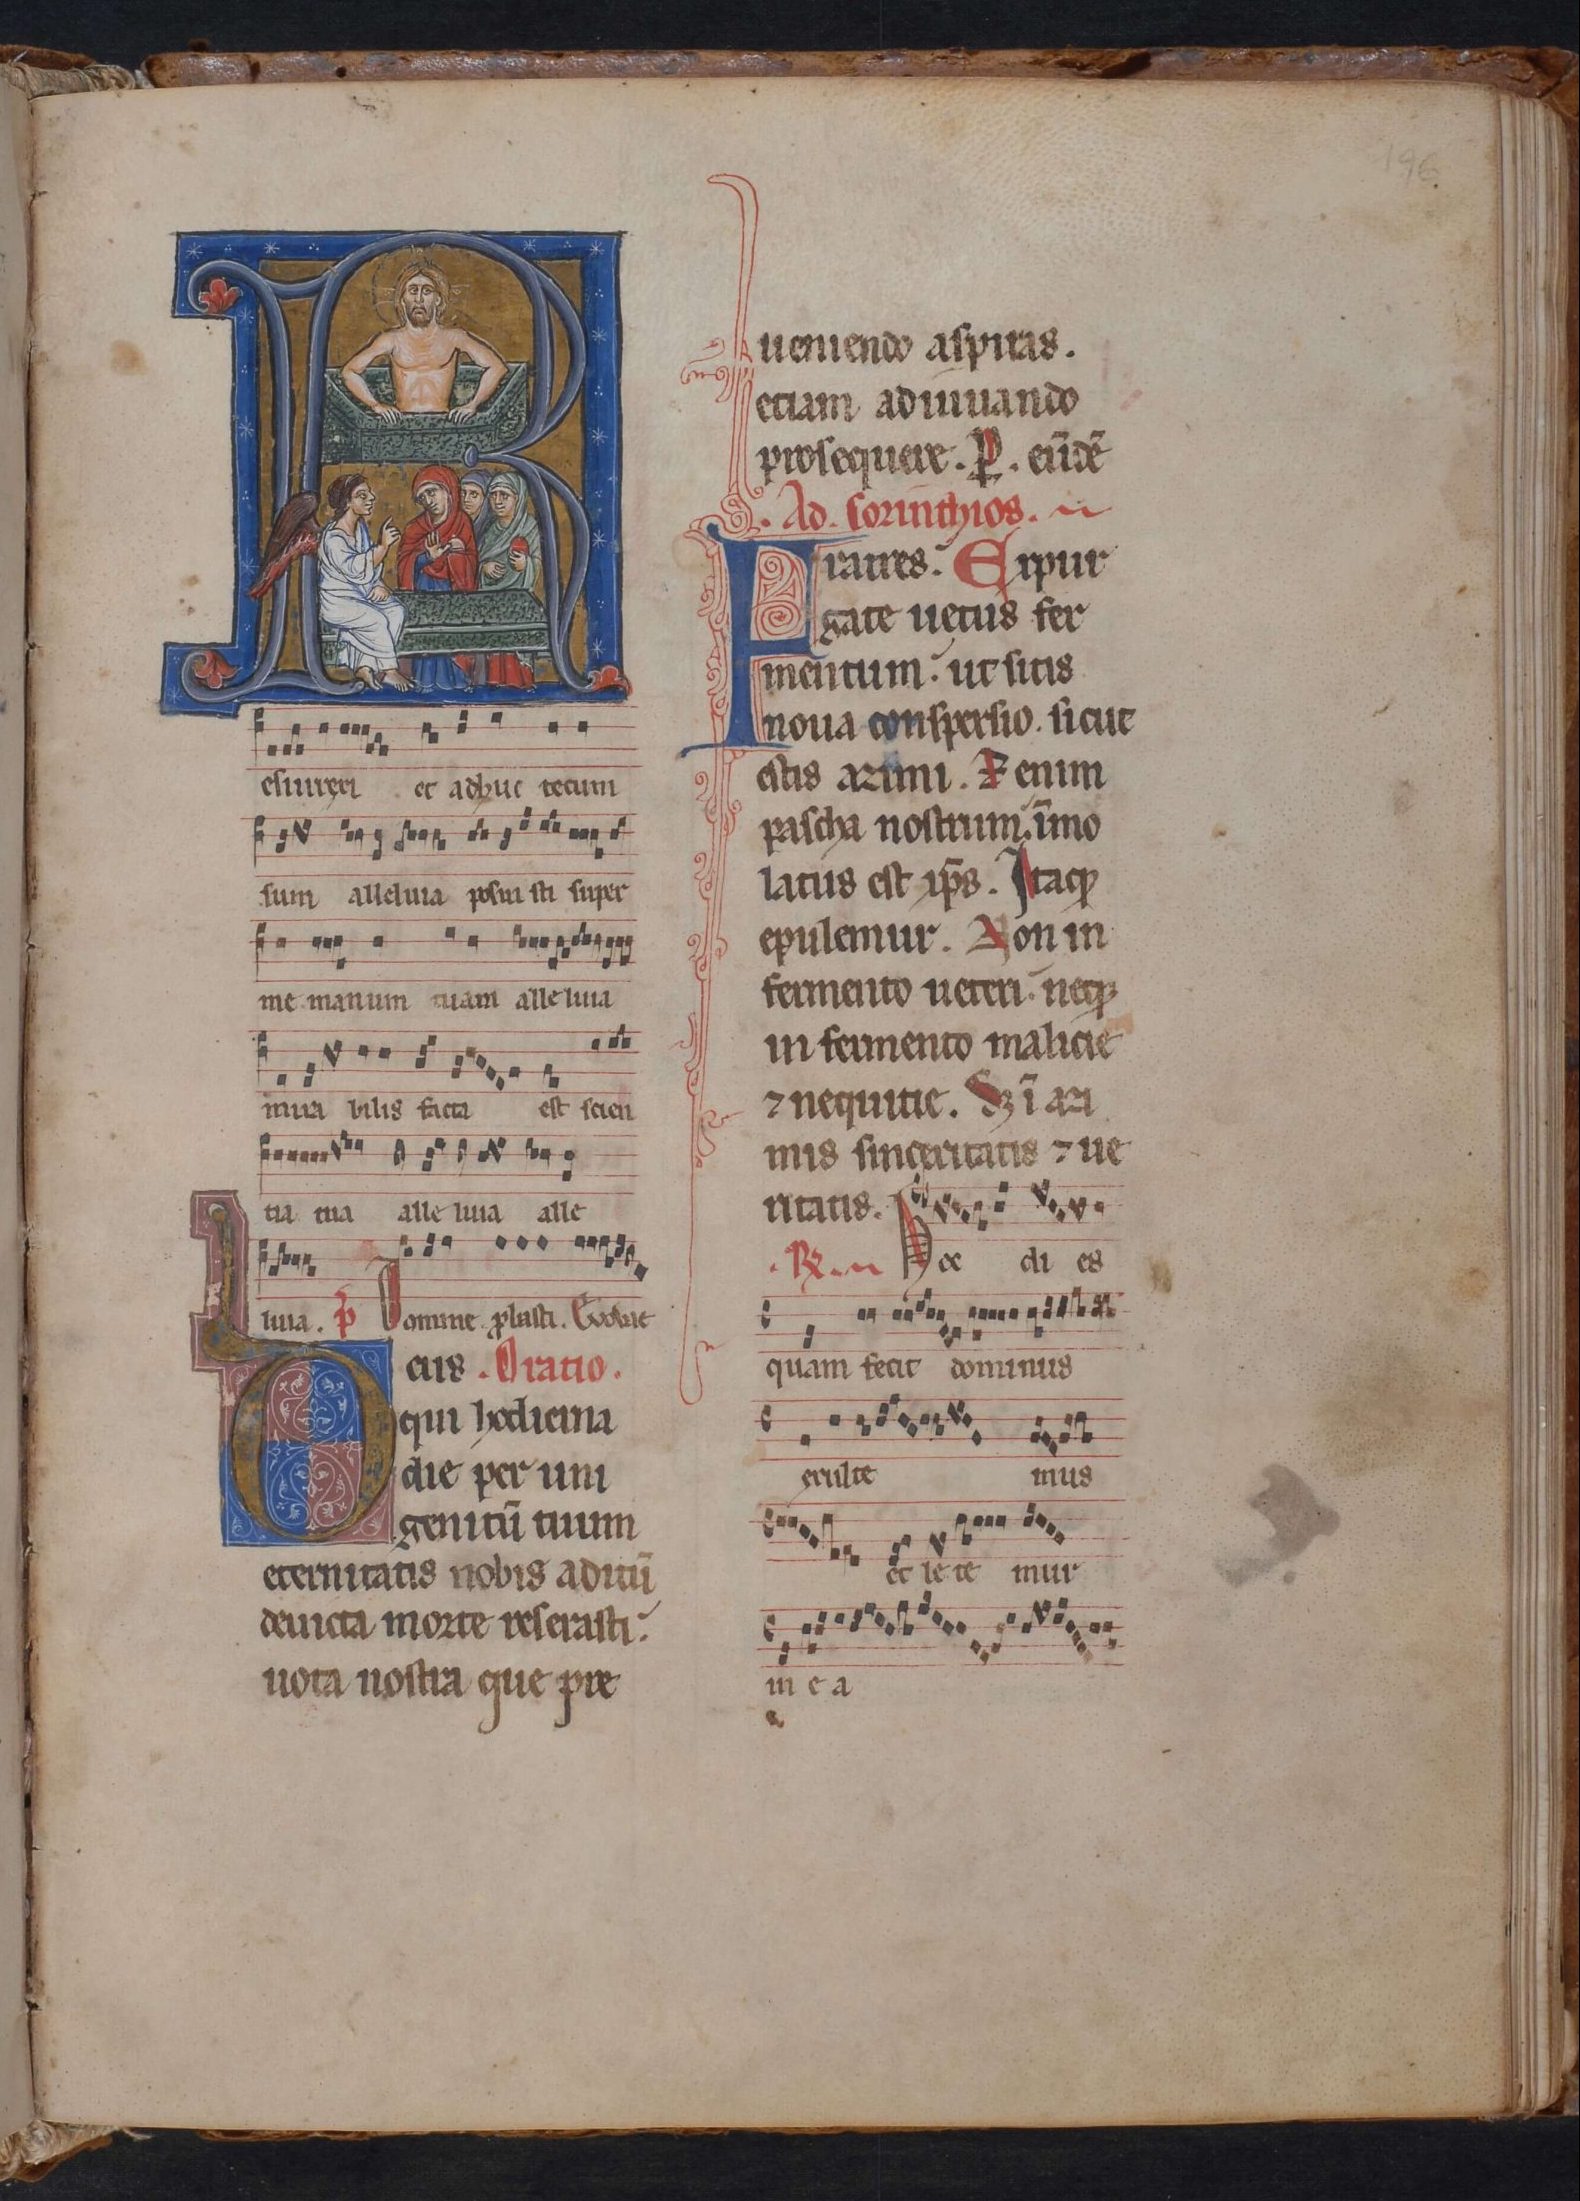 196
Resurrexi et adhuc tecum
sum alleluia posui sti super
me manum tuam alleluia
mira bilis facta est scien
tia tua alle luia alle
luia. p̄ Domine ꝓbasti. Evovae
eus. Oratio.
D qui hodierna
die per uni
genitū tuum
eternitatis nobis aditū
deuicta morte reserasti:
uota nostra que pre
ueniendo aspiras.
etiam adiuuando
prosequere. P̱. eūdē
. Ad. Corinthios.
Fratres. Expur
gate uetus fer
mentum. ut sitis
noua conspersio. sicut
estis azimi. Et enim
pascha nostrum īmo
latus est xp̄s. Itaqꝫ
epulemur. Non in
fermento ueteri. neqꝫ
in fermento malicie
⁊ nequitie. Sꝫ ī azi
mis sinceritatis ⁊ ue
ritatis.
. R. Hec di es
quam fecit dominus
exulte mus
et le te mur
in e a